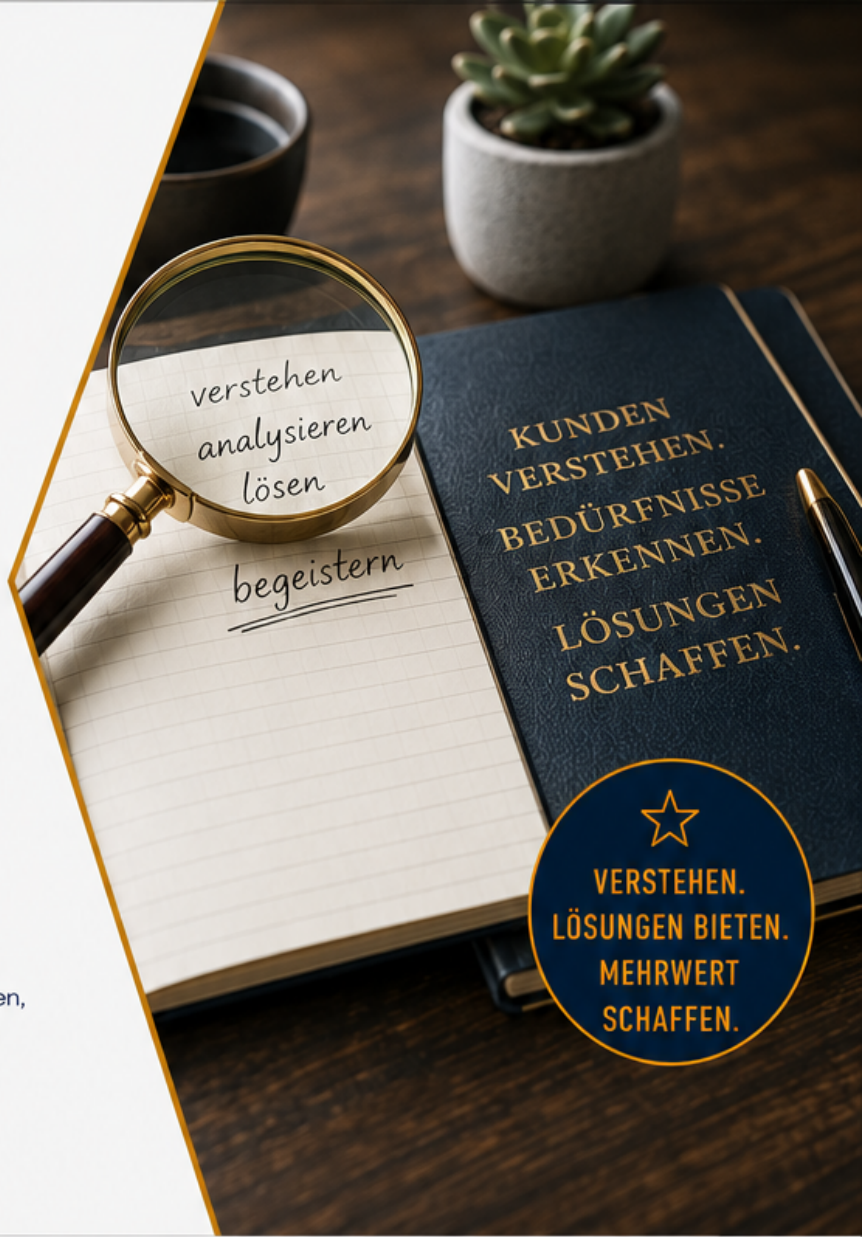 verstehen
analysieren
lösen
begeistern
KUNDEN
VERSTEHEN.
BEDÜRFNISSE
ERKENNEN.
LÖSUNGEN
SCHAFFEN.
VERSTEHEN.
LÖSUNGEN BIETEN.
MEHRWERT
SCHAFFEN.
en,